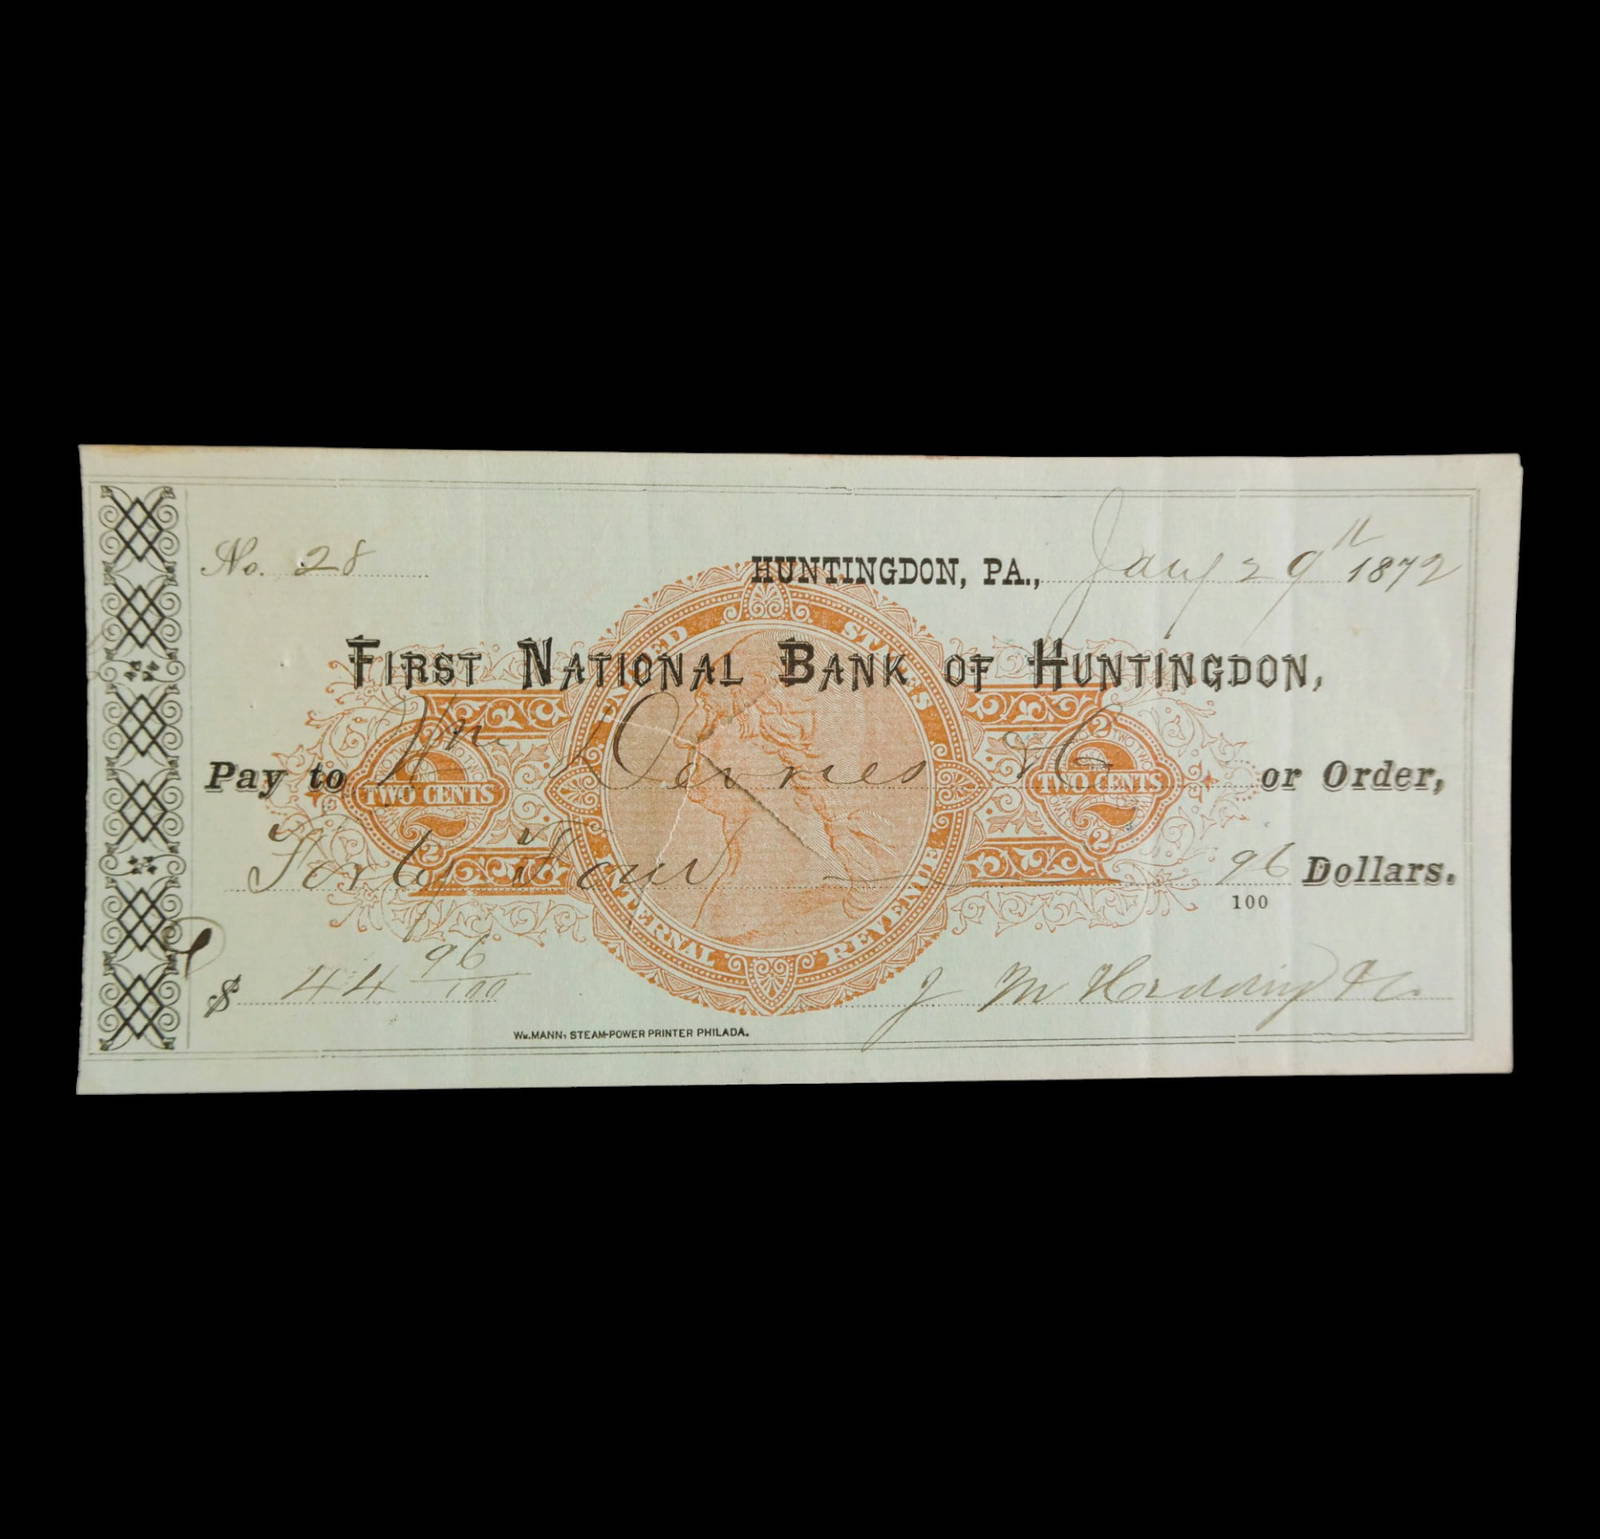 No. 28
HUNTINGDON, PA., Jany 29th 1872
FIRST NATIONAL BANK OF HUNTINGDON,
Pay to Wm or Order,
Forty Four 96/100 Dollars.
$ 44 96/100
J M & Co
WM. MANN, STEAM-POWER PRINTER PHILADA.
UNITED STATES
INTERNAL REVENUE
U.S.
2 TWO CENTS
2 TWO CENTS